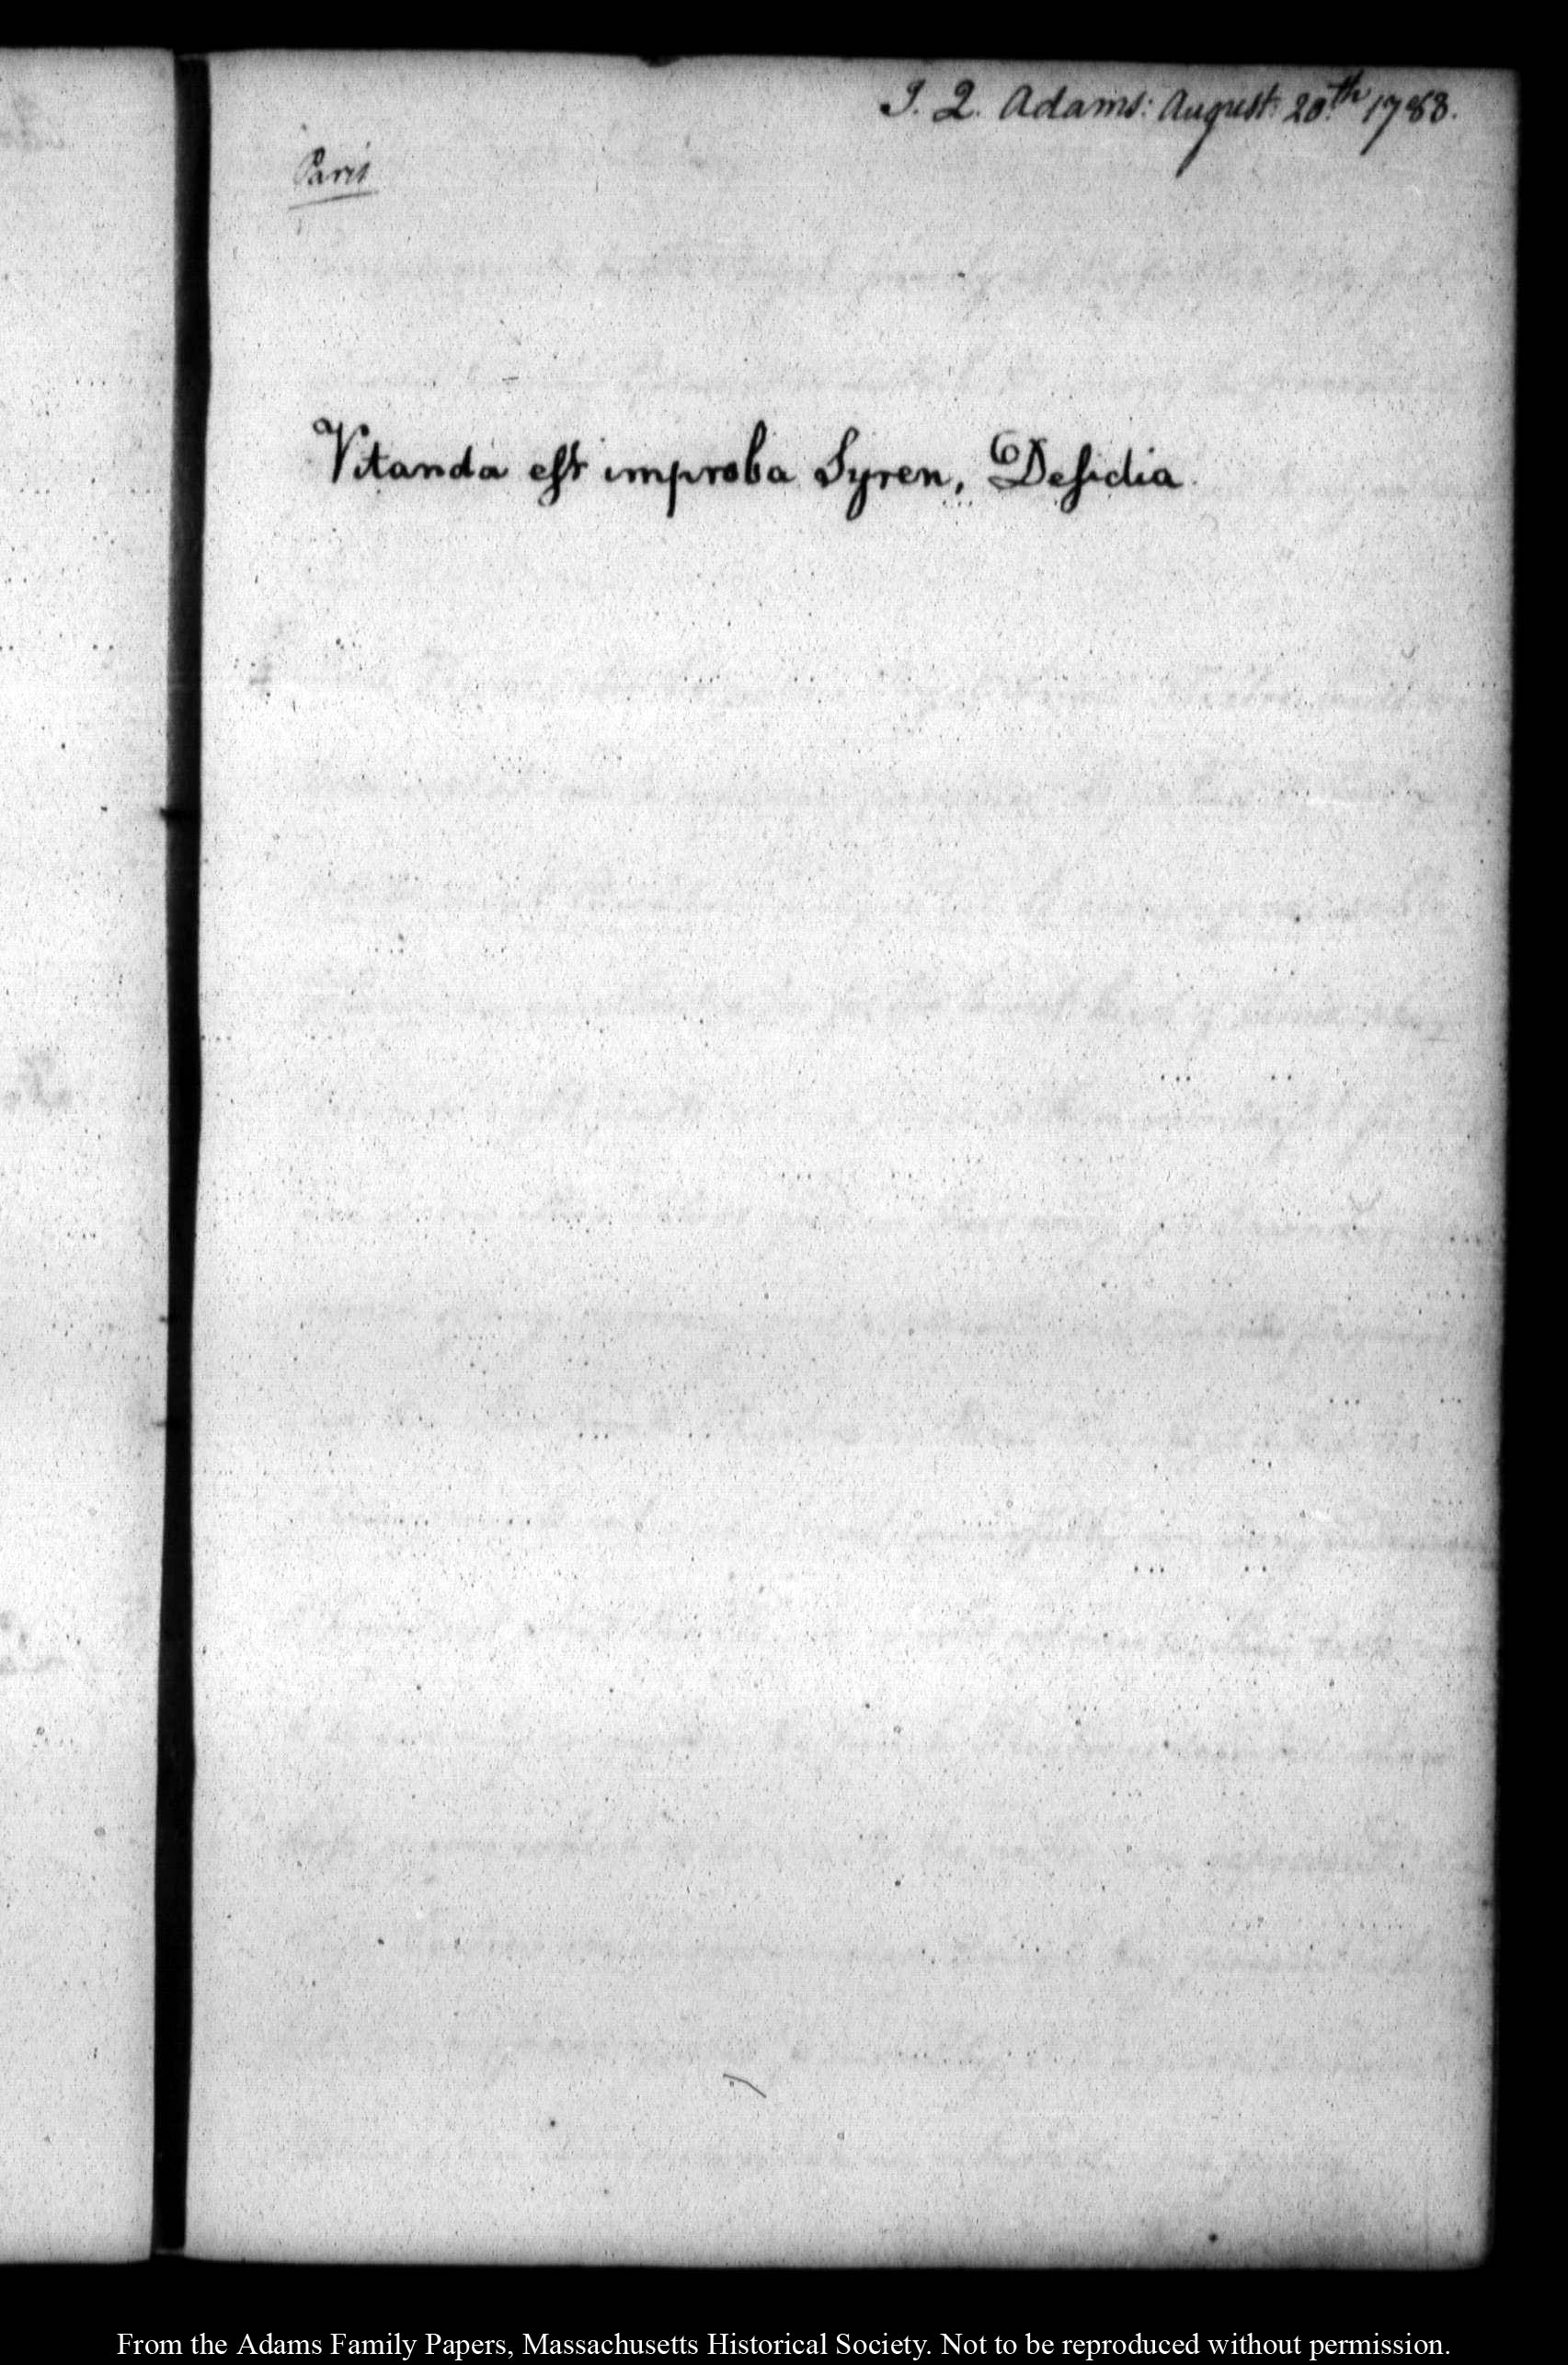 J. Q. Adams: August: 20.th 1788.
Paris
Vitanda est improba Syren, Desidia.
From the Adams Family Papers, Massachusetts Historical Society. Not to be reproduced without permission.